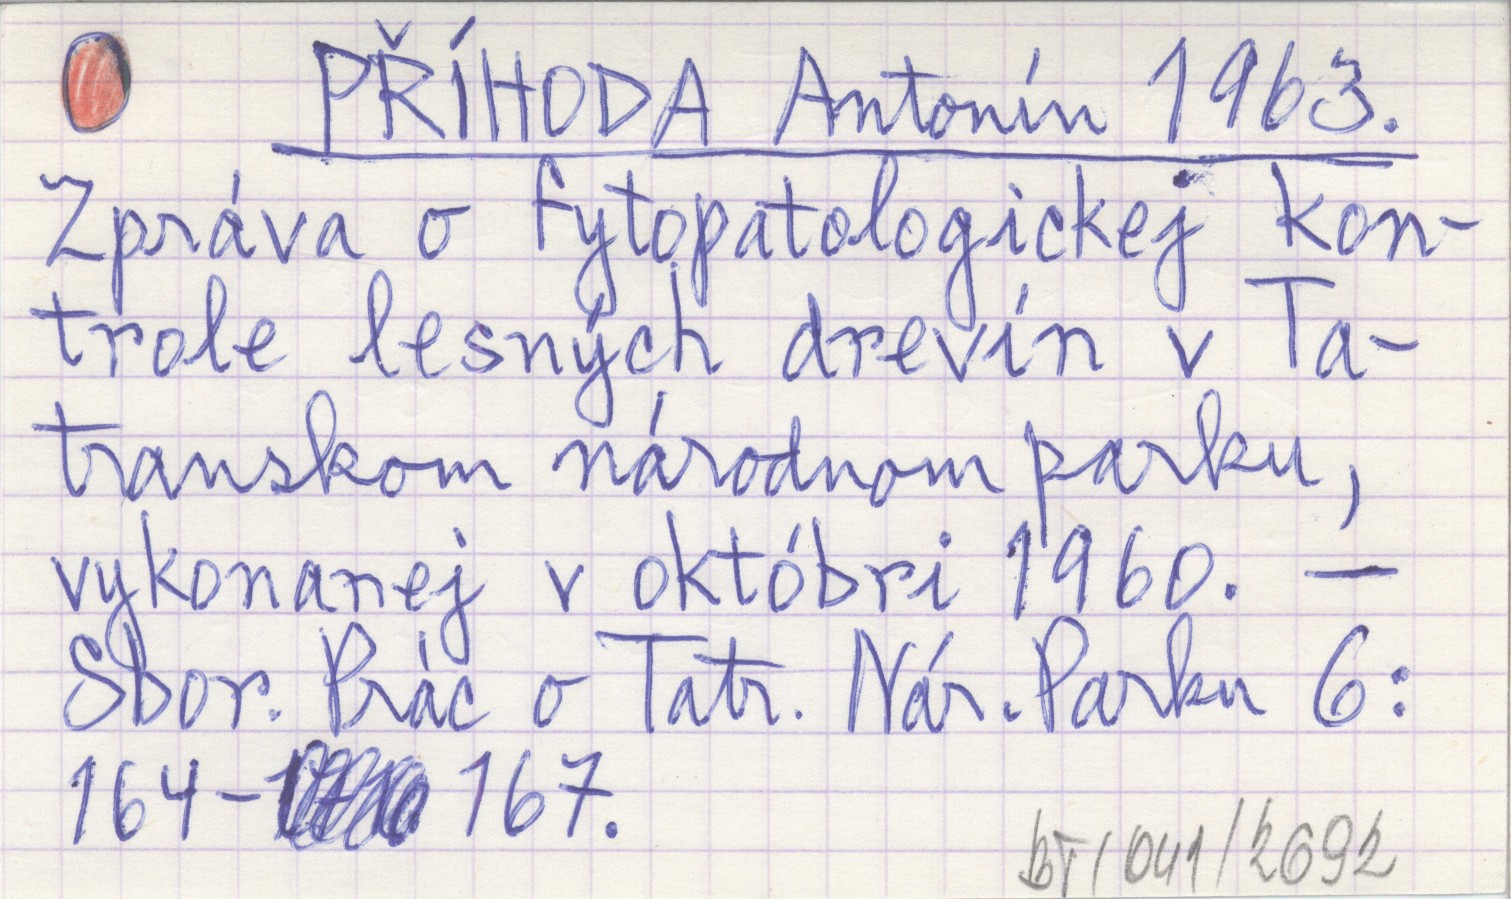 PŘÍHODA Antonín 1963.
Zpráva o fytopatologickej kon-
trole lesných drevín v Ta-
transkom národnom parku,
vykonanej v októbri 1960. —
Sbor. Prác o Tatr. Nár. Parku 6:
164- 167.
BT/041/2692